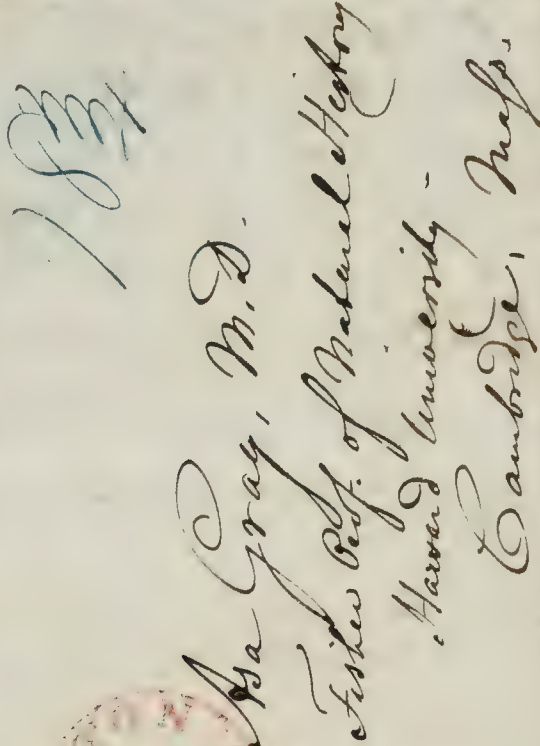 Asa Gray, M.D.
Fisher Prof. of Natural History
Harvard University -
Cambridge, Mass.